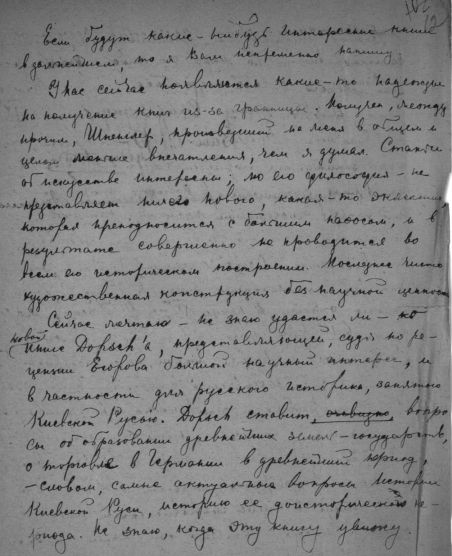 Если будут какие-нибудь интересные книги
в дальнейшем, то я Вам непременно напишу.
У нас сейчас появляются какие-то надежды
на получение книг из-за границы. Получен, между
прочим, Шпенглер, произведший на меня в общем и
целом меньше впечатления, чем я думал. Статьи
об искусстве интересны; но его философия - не
представляет ничего нового, какая-то
которая преподносится с большим пафосом, и в
результате совершенно не проводится во
всем его историческом построении. Последнее чисто
художественная конструкция без научной ценности
Сейчас мечтаю - не знаю удастся ли - о
новой
книге Dopsch'а, представляющей, судя по ре-
цензии Егорова большой научный интерес, и
в частности для русского историка, занятого
Киевской Русью. Dopsch ставит, вопро-
сы об образовании древнейших земель-государств,
о торговле в Германии в древнейший период,
- словом, самые актуальные вопросы истории
Киевской Руси, историю ее доисторического пе-
риода. Не знаю, когда эту книгу увижу.